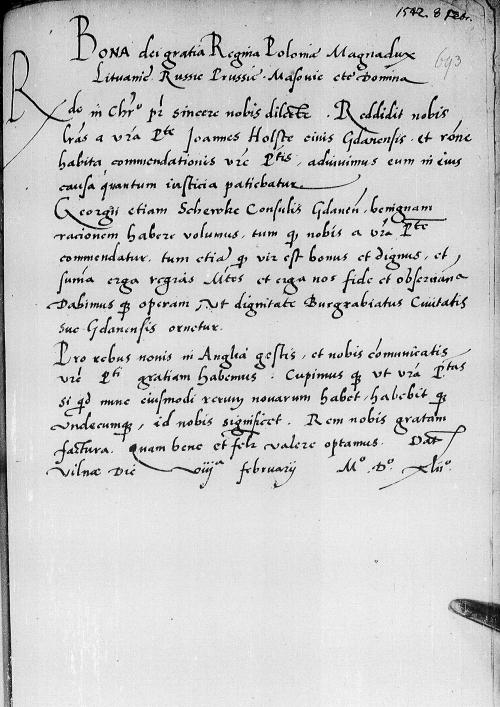 1542. 8 Febr.
693
BONA dei gratia Regina Poloniæ Magnadux
Lituaniæ Russie Prussie Masovie etc Domina
Rde in Chro pr sincere nobis dilecte. Reddidit nobis
lras a vra Pte Joannes Holste civis Gdanensis. et rone
habita commendationis vre Ptis, adiuvimus eum in eius
causa quantum iusticia patiebatur.
Georgii etiam Schewke Consulis Gdanen, benignam
racionem habere volumus, tum q nobis a vra Pte
commendatur, tum etia q vir est bonus et dignus, et
suma erga regias Mtes et erga nos fide et observana
Dabimus q operam, Ut dignitate Burgrabiatus Civitatis
sue Gdanensis ornetur.
Pro rebus novis in Anglia gestis, et nobis comunicatis
vre Pti gratiam habemus. Cupimus q ut vra Ptas
si qd nunc eiusmodi rerum novarum habet, habebit q
undecumq, id nobis significet. Rem nobis gratam
factura. Quam bene et felr valere optamus. Dat
Vilnæ Die viija februarij Mo. Do. xlijo.